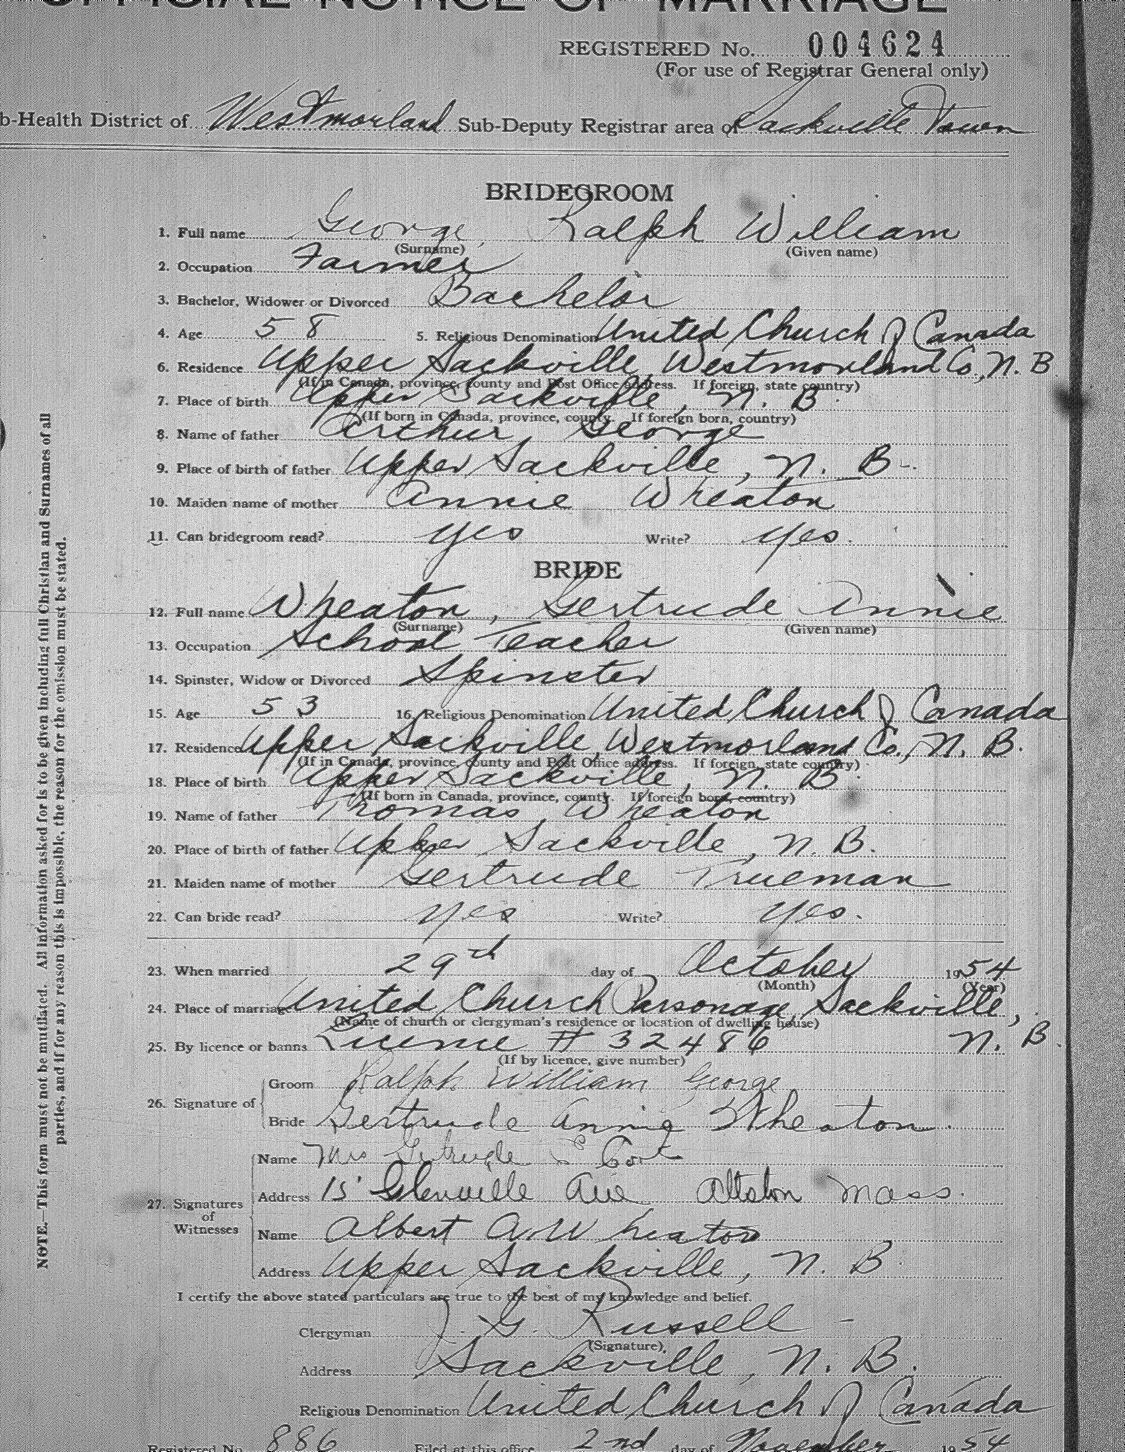 OFFICIAL NOTICE OF MARRIAGE
REGISTERED No. 004624
(For use of Registrar General only)
b-Health District of Westmorland Sub-Deputy Registrar area of Sackville Town
BRIDEGROOM
1. Full name George, Ralph William
(Surname) (Given name)
2. Occupation Farmer
3. Bachelor, Widower or Divorced Bachelor
4. Age 58 5. Religious Denomination United Church of Canada
6. Residence Upper Sackville, Westmorland Co., N. B
(If in Canada, province, county and Post Office address. If foreign, state country)
7. Place of birth Upper Sackville, N. B.
(If born in Canada, province, county. If foreign born, country)
8. Name of father Arthur, George
9. Place of birth of father Upper Sackville, N. B.
10. Maiden name of mother Annie Wheaton
11. Can bridegroom read? yes Write? yes.
BRIDE
12. Full name Wheaton, Gertrude Annie
(Surname) (Given name)
13. Occupation School Teacher
14. Spinster, Widow or Divorced Spinster
15. Age 53 16. Religious Denomination United Church of Canada
17. Residence Upper Sackville, Westmorland Co., N. B.
(If in Canada, province, county and Post Office address. If foreign, state country)
18. Place of birth Upper Sackville, N. B.
(If born in Canada, province, county. If foreign born, country)
19. Name of father Thomas, Wheaton
20. Place of birth of father Upper Sackville, N. B.
21. Maiden name of mother Gertrude Trueman
22. Can bride read? yes Write? yes.
23. When married 29th day of October 1954
(Month) (Year)
24. Place of marriage United Church Parsonage, Sackville,
(Name of church or clergyman's residence or location of dwelling house)
25. By licence or banns Licence # 32486 N. B.
(If by licence, give number)
26. Signature of
Groom Ralph William George
Bride Gertrude Annie Wheaton.
27. Signatures of Witnesses
Name Mrs Gertrude
Address 15 Glenville Ave Allston Mass.
Name Albert A. Wheaton
Address Upper Sackville, N. B.
I certify the above stated particulars are true to the best of my knowledge and belief.
Clergyman J. G. Russell
(Signature)
Address Sackville, N. B.
Religious Denomination United Church of Canada
Registered No. 886 Filed at this office 2nd day of November 1954
NOTE.—This form must not be mutilated. All information asked for is to be given including full Christian and Surnames of all
parties, and if for any reason this is impossible, the reason for the omission must be stated.